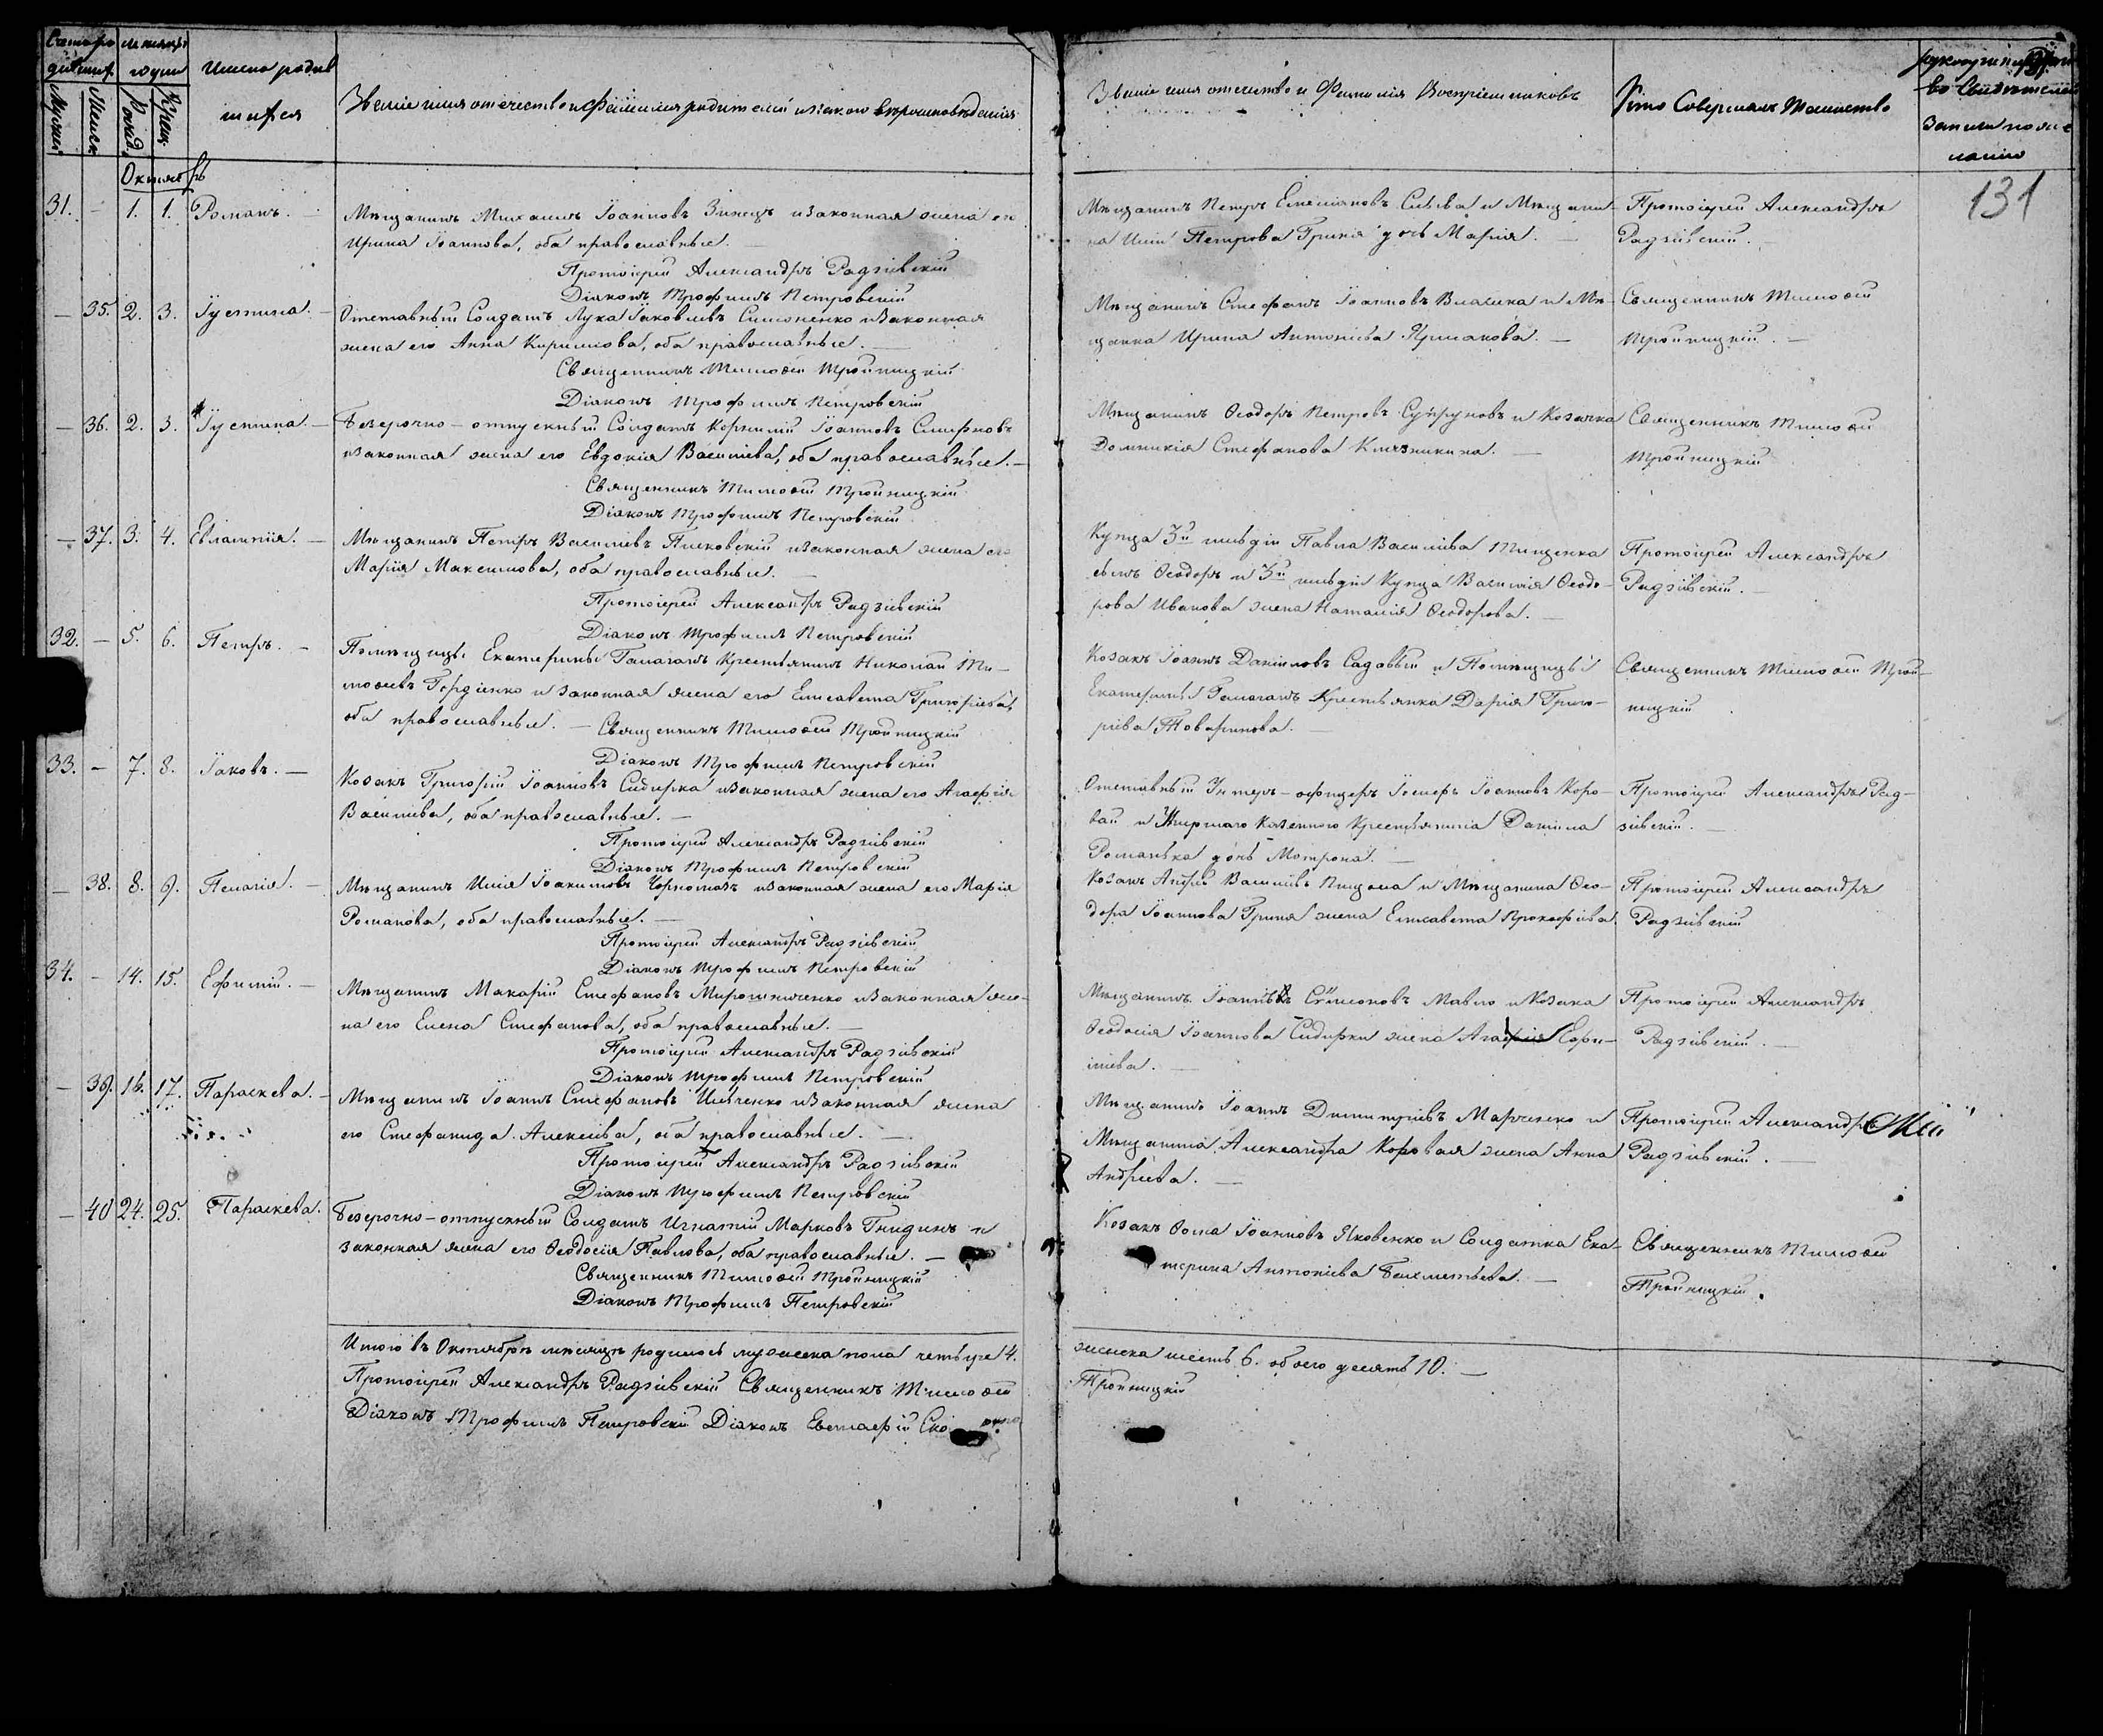 Счетъ ро
дившихся
Мѣсяцъ
и день
Имена родив
шихся
Званіе имя отечество и Фамилія родителей и какого вѣроисповѣданія
Званіе имя отечество и Фамилія Воспріемниковъ
Кто Совершалъ Таинство
Рукоприкладст
во Свидѣтелей
записи по же
ланію
Мужес. Женск. Рожд. Крещ.
Октябрь
131
31. – 1. 1. Романъ. –
Мѣщанинъ Михаилъ Іоанновъ Зинецъ и законная жена его
Ирина Іоаннова, оба православные. –
Протоіерей Александръ Радзіевскій
Діаконъ Трофимъ Петровскій
Мѣщанинъ Петръ Емельяновъ Сыева и Мѣщани-
на Петрова Гриня дочь Марія. –
Протоіерей Александръ
Радзіевскій. –
– 35. 2. 3. Іустина. –
Отставный Солдатъ Лука Іаковлевъ Симоненко и законная
жена его Анна Кириллова, оба православные. –
Священникъ Тимоѳей Тройницкій
Діаконъ Трофимъ Петровскій
Мѣщанинъ Стефанъ Іоанновъ Власенка и Мѣ-
щанка Ирина Антоніева Ярмакова. –
Священникъ Тимоѳей
Тройницкій. –
– 36. 2. 3. Іустина. –
Безсрочно-отпускный Солдатъ Корнилій Іоанновъ
и законная жена его Евдокія Василіева, оба православные. –
Священникъ Тимоѳей Тройницкій
Діаконъ Трофимъ Петровскій
Мѣщанинъ Ѳеодоръ Петровъ Супруновъ и Козачка
Домникія Стефанова –
Священникъ Тимоѳей
Тройницкій
– 37. 3. 4. Евлампія. –
Мѣщанинъ Петръ Василіевъ Писковскій и законная жена его
Марія Максимова, оба православные. –
Протоіерей Александръ Радзіевскій
Діаконъ Трофимъ Петровскій
Купца 3й гильдіи Павла Василіева Тищенка
сынъ Ѳеодоръ и 3й гильдіи Купца Василія Ѳеодо-
рова Иванова жена Наталія Ѳеодорова. –
Протоіерей Александръ
Радзіевскій. –
32. – 5. 6. Петръ. –
Помѣщицы Екатерины Галаганъ Крестьянинъ Николай Ти-
моѳеевъ Гордіенко и законная жена его Елисавета Григоріева,
оба православные. – Священникъ Тимоѳей Тройницкій
Діаконъ Трофимъ Петровскій
Козакъ Іоаннъ Даніиловъ Садовый и Помѣщицы
Екатерины Галаганъ Крестьянка Дарія Григо-
ріева Товаринова. –
Священникъ Тимоѳей Трой-
ницкій
33. – 7. 8. Іаковъ. –
Козакъ Григорій Іоанновъ Сидирка и законная жена его Агафія
Василіева, оба православные. –
Протоіерей Александръ Радзіевскій
Діаконъ Трофимъ Петровскій
Отставный Унтеръ-офицеръ Іосифъ Іоанновъ Коро-
вай и Умершаго Казенного Крестьянина Даніила
Романька дочь Мотрона. –
Протоіерей Александръ Рад-
зіевскій. –
– 38. 8. 9. Пелагія. –
Мѣщанинъ Илія Іоакимовъ Чорногозъ и законная жена его Марія
Романова, оба православные. –
Протоіерей Александръ Радзіевскій
Діаконъ Трофимъ Петровскій
Козакъ Андрей Василіевъ и Мѣщанина Ѳео-
дора Іоаннова Гриня жена Елисавета Прокофіева.
Протоіерей Александръ
Радзіевскій
34. – 14. 15. Ефимій. –
Мѣщанинъ Макарій Стефановъ Мирошниченко и законная же-
на его Елена Стефанова, оба православные. –
Протоіерей Александръ Радзіевскій
Діаконъ Трофимъ Петровскій
Мѣщанинъ Симеоновъ Мавло и Козака
Ѳеодосія Іоаннова Сидирки жена Агафія Ефи-
міева. –
Протоіерей Александръ
Радзіевскій. –
– 39. 16. 17. Параскева. –
Мѣщанинъ Іоаннъ Стефановъ Ильченко и законная жена
его Стефанида Алексіева, оба православные. –
Протоіерей Александръ Радзіевскій
Діаконъ Трофимъ Петровскій
Мѣщанинъ Іоаннъ Димитріевъ Марченко и
Мѣщанина Александра Коровая жена Анна
Андріева. –
Протоіерей Александръ
Радзіевскій. –
– 40 24. 25. Параскева.
Безсрочно-отпускный Солдатъ Игнатій Марковъ Гнидинъ и
законная жена его Ѳеодосія Павлова, оба православные. –
Священникъ Тимоѳей Тройницкій
Діаконъ Трофимъ Петровскій
Козакъ Ѳома Іоанновъ Яковенко и Солдатка Ека-
терина Антоніева Бахметьева. –
Священникъ Тимоѳей
Тройницкій.
Итого въ Октябрѣ мѣсяцѣ родилось мужеска пола четыре 4.
женска шесть 6. обоего десять 10. –
Протоіерей Александръ Радзіевскій Священникъ Тимоѳей
Тройницкій
Діаконъ Трофимъ Петровскій Діаконъ Евстафій